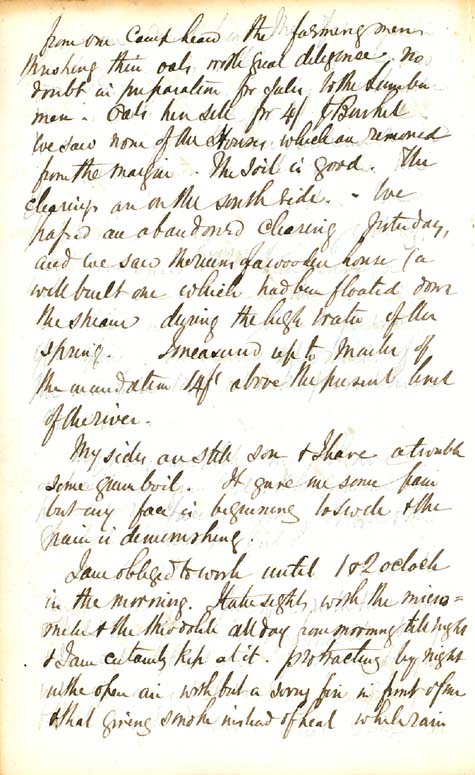 from our Camp heard the farming men
thrashing their oats with great diligence, no
doubt in preparation for sales to the lumber
men - Oats here sell for 4/ P Bushel
We saw none of the Houses, which are removed
from the margin - The Soil is good. The
clearings are on the south side. - We
passed an abandoned clearing yesterday,
and we saw the ruins of a wooden house (a
well built one which had been floated down
the stream during the high water of the
spring. I measured up to marks of
the inundation 14ft above the present level
of the river.
My sides are still sore & I have a trouble
some gum boil. It gave me some pain
but my face is beginning to swell & the
pain is diminishing.
I am obliged to work until 1 & 2 oclock
in the morning. I take sights with the micro=
meter & the theodolite all day from morning till night
& I am certainly kept at it. protracting by night
in the open air with but a sorry fire in front of me
& that giving smoke instead of heat while rain